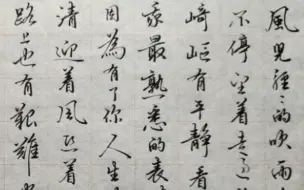 風兒輕々的吹雨
不停望着走过
崎嶇有平靜看
最熟悉的表
因為有了你人生
清迎着風着
路上也有艱難